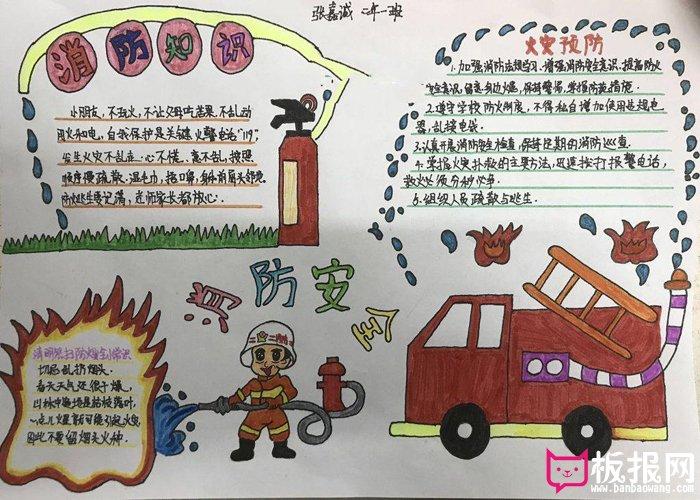 张嘉诚 二年一班
消防知识
小朋友,不玩火,不让父母吃苦果,不乱动
用火和电,自我保护是关键,火警电话"119",
发生火灾不乱走,心不慌,意不乱,按照
顺序慢疏散,湿毛巾,捂口鼻,
防火逃生要记满,老师家长都放心.
火灾预防
1.加强消防法规学习,增强消防安全意识,提高防火
掌握防范措施.
2.遵守学校防火制度,不得私自增加使用违规电
器,乱接电线.
3.认真开展消防安全检查,保持定期的消防巡查.
4.掌握火灾扑救的主要方法,迅速拨打报警电话,
救火必须分秒必争.
5.组织人员疏散与逃生.
消防安全
清明祭扫防火安全小常识
切忌乱扔烟头.
春天天气还很干燥,
山林中遍地是枯枝落叶,
一点儿火星都可能引起火灾
因此不要留烟头火种.
板报网
www.banbaowang.com